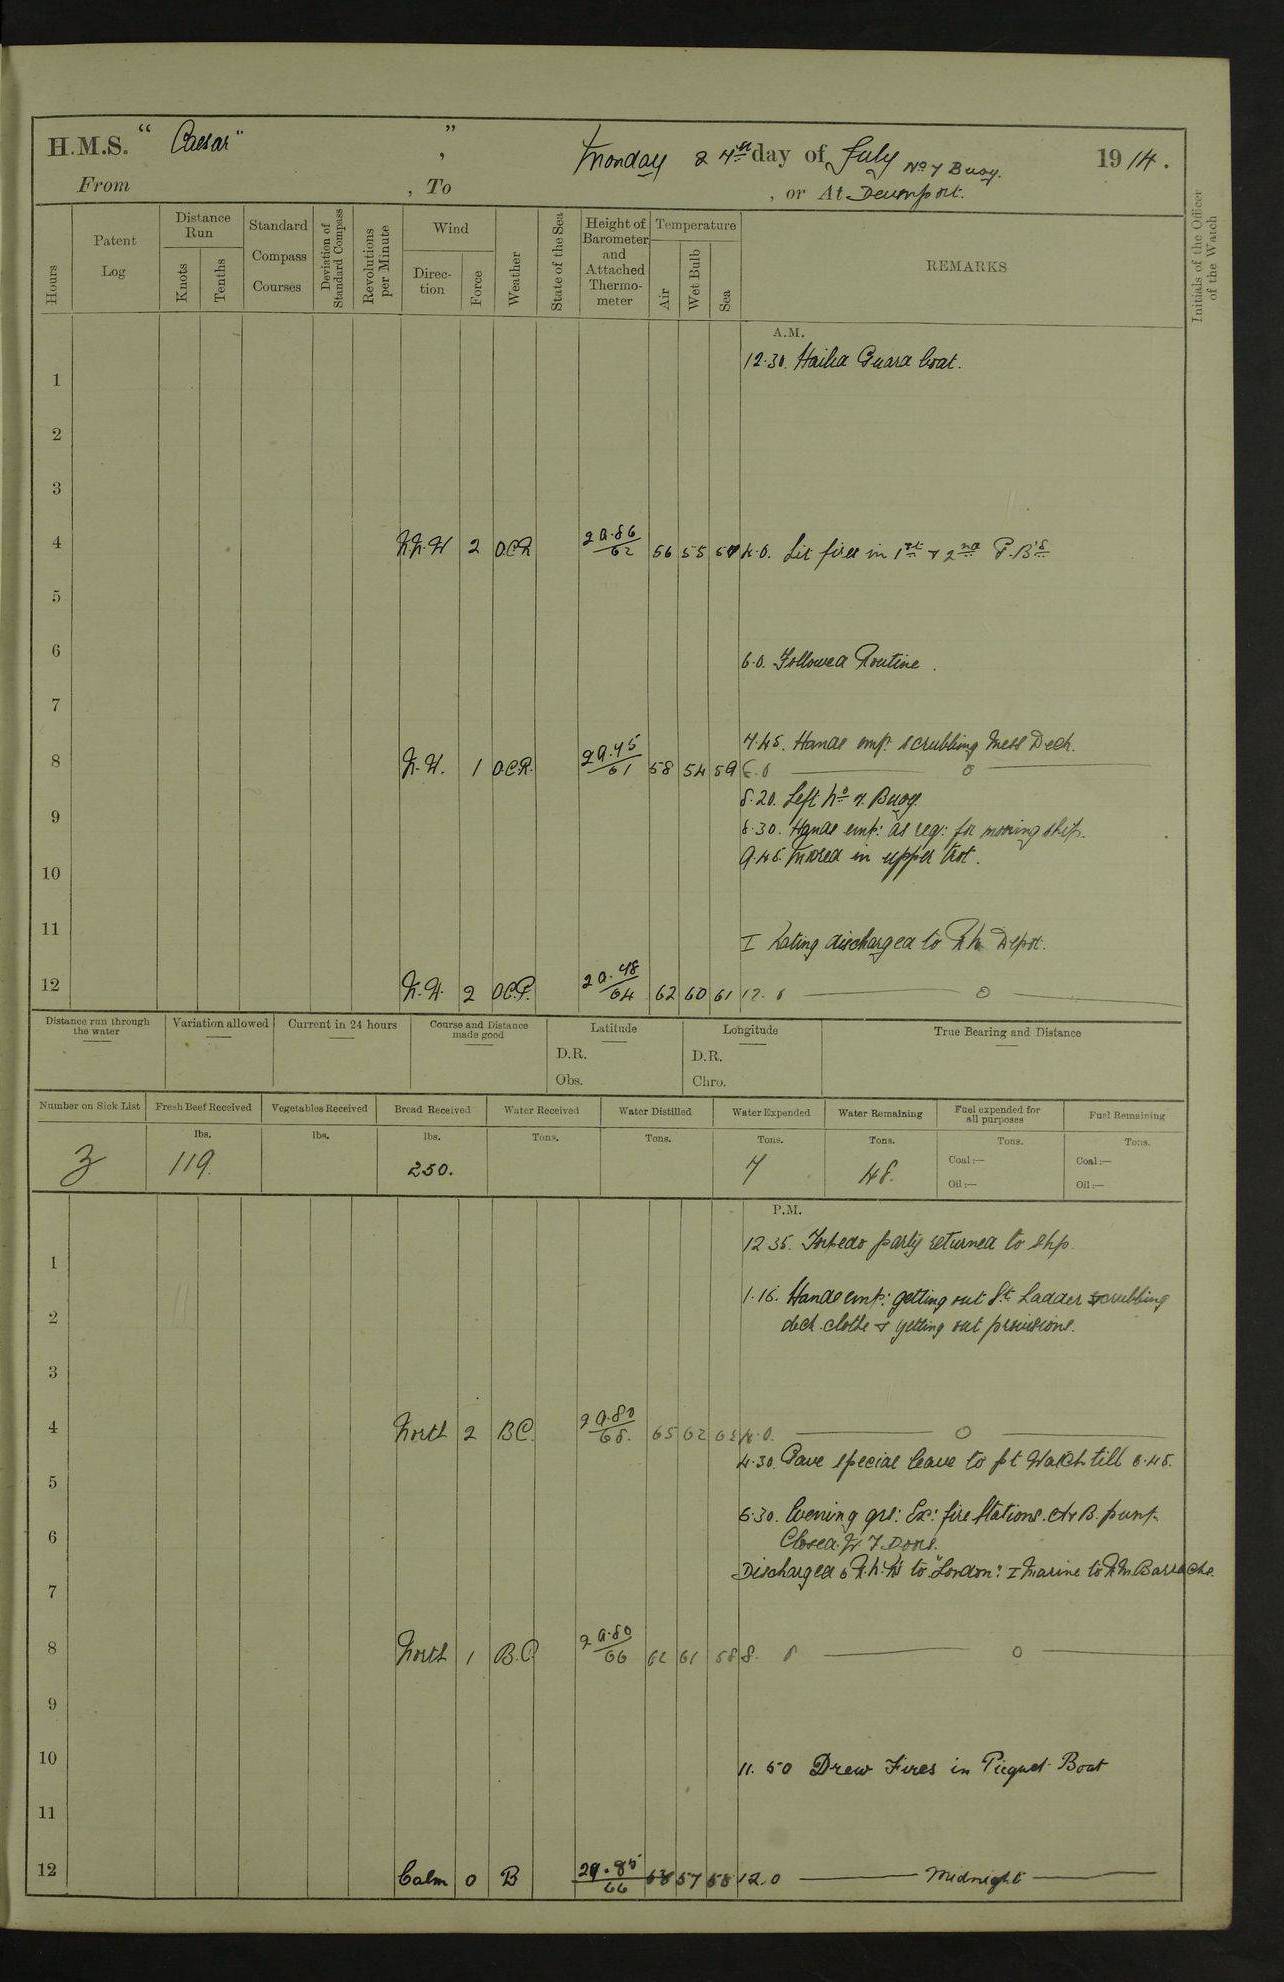 H.M.S. " Caesar " , "
Monday 27th day of July 1914.
No 7 Buoy.
From , To , or At Devonport.
Hours
Patent Log
Distance Run
Knots
Tenths
Standard Compass Courses
Deviation of Standard Compass
Revolutions per Minute
Wind
Direction
Force
Weather
State of the Sea
Height of Barometer and Attached Thermometer
Temperature
Air
Wet Bulb
Sea
REMARKS
Initials of the Officer of the Watch
A.M.
12.30. Hailed Guard boat.
1
2
3
4 N.N.W 2 O.C.R 62 56 55 4.0. Lit fires in 1st & 2nd P.B's
5
6 6.0. Followed Routine.
7
7.45. Hands emp: scrubbing Mess Deck.
8 N.W. 1 O.C.R. 29.75 61 58 54 59 8.0 0
8.20. Left No 7. Buoy.
9 8.30. Hands emp: as req: for mooring ship.
9.45. Moored in upper trot.
10
11 I Rating discharged to RN Depot.
12 N.W. 2 O.C.P. 29.78 64 62 60 61 12.0 0
Distance run through the water
Variation allowed
Current in 24 hours
Course and Distance made good
Latitude
D.R.
Obs.
Longitude
D.R.
Chro.
True Bearing and Distance
Number on Sick List
Fresh Beef Received
Vegetables Received
Bread Received
Water Received
Water Distilled
Water Expended
Water Remaining
Fuel expended for all purposes
Fuel Remaining
lbs. lbs. lbs. Tons. Tons. Tons. Tons. Tons. Tons.
3 119. 250. 7 48. Coal:— Coal:—
Oil:— Oil:—
P.M.
12.35. Torpedo party returned to ship.
1
1.15. Hands emp: getting out St. Ladder scrubbing
2 deck cloths & getting out provisions.
3
4 North 2 B.C. 29.80 68. 65 62 4.0. 0
4.30. Gave special leave to pt Watch till
5
5.30. Evening qrs: Ex: fire Stations. A & B. pump.
6 Closed W T Doors.
Discharged 6 to "London": I Marine to RM Barracks.
7
8 North 1 B.C 29.80 66 62 61 58 8.0 0
9
10 11.50 Drew Fires in Picquet Boat
11
12 Calm 0 B 29.85 66 57 58 12.0 Midnight